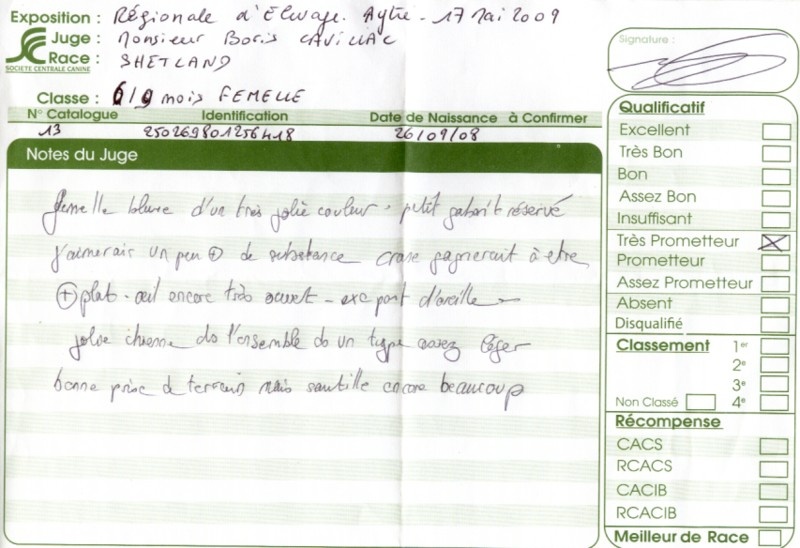 Exposition : Régionale d'Elevage. Aytre - 17 Mai 2009
Juge : Monsieur Boris CAVILLAC
Race : SHETLAND
SOCIETE CENTRALE CANINE
Classe : 6/9 mois FEMELLE
N° Catalogue Identification Date de Naissance à Confirmer
13 250269801256418 26/09/08
Notes du Juge
femelle bleue d'un très jolie couleur - petit gabarit réservé
j'aimerais un peu + de substance crane gagnerait à etre
+ plat - œil encore très ouvert - exc port d'oreille -
jolie chienne ds l'ensemble ds un type assez léger
bonne prise de terrain mais sautille encore beaucoup
Signature :
Qualificatif
Excellent
Très Bon
Bon
Assez Bon
Insuffisant
Très Prometteur X
Prometteur
Assez Prometteur
Absent
Disqualifié
Classement 1er
2e
3e
Non Classé 4e
Récompense
CACS
RCACS
CACIB
RCACIB
Meilleur de Race